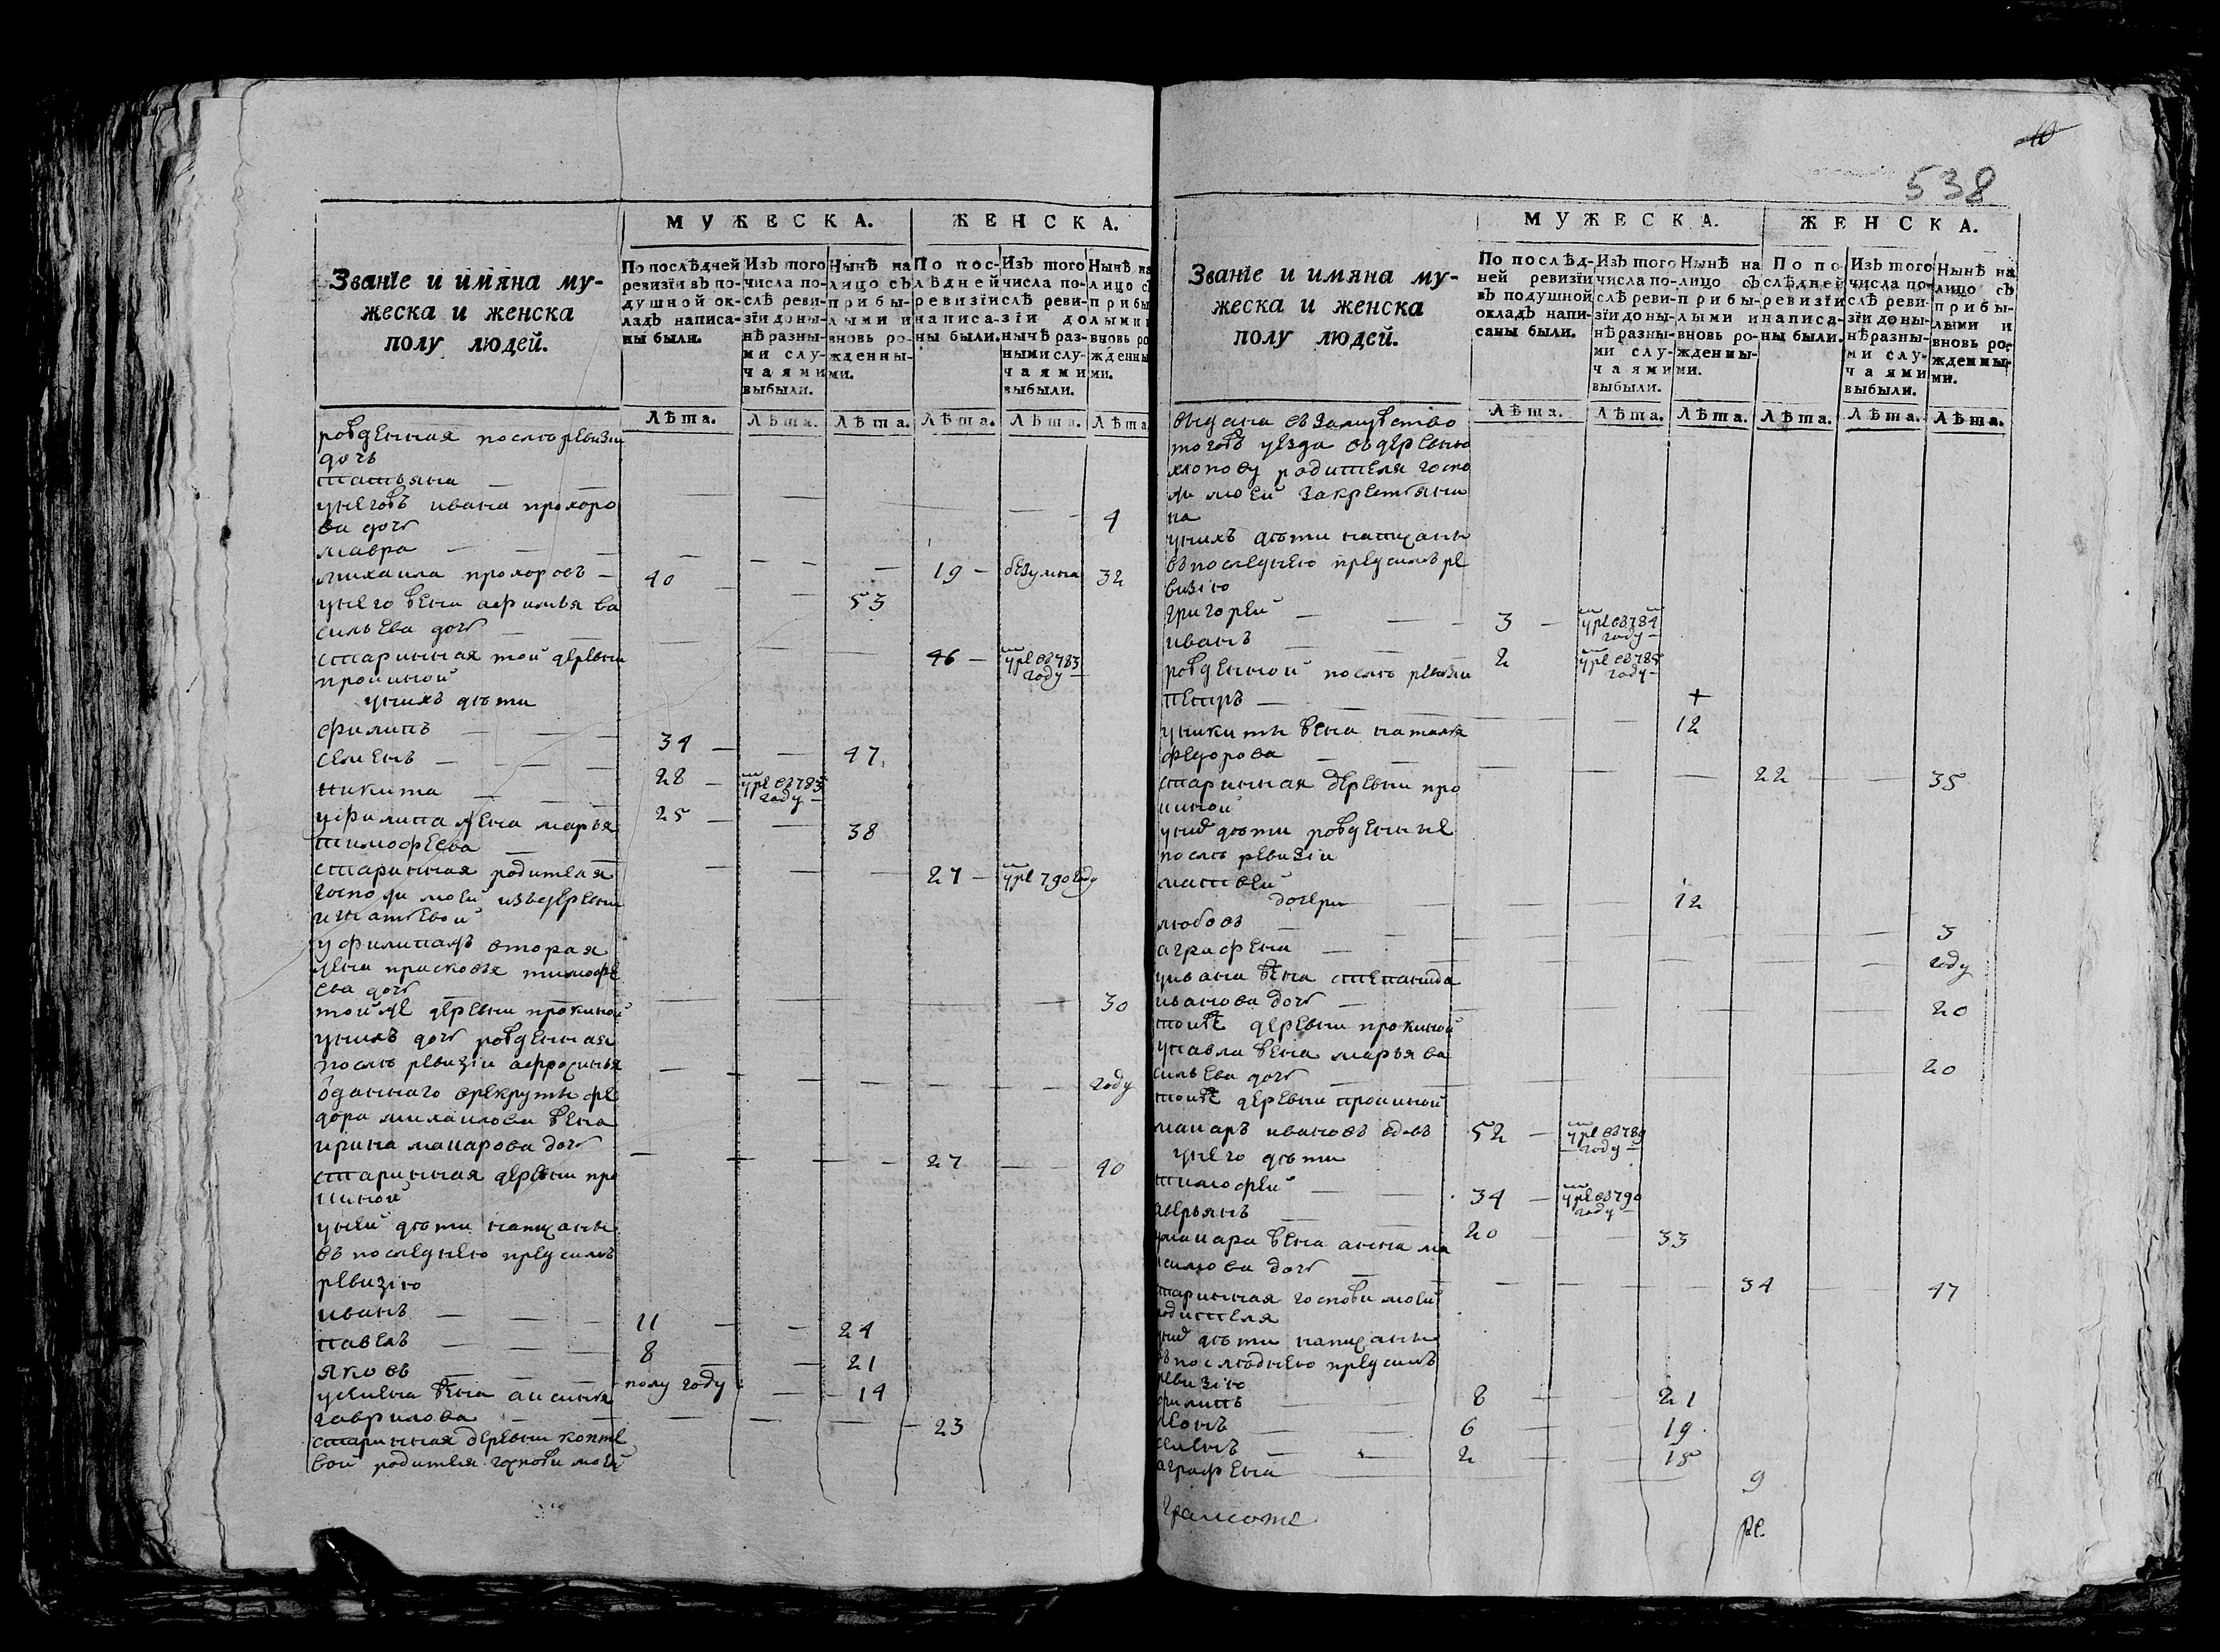 10
538
МУЖЕСКА.
ЖЕНСКА.
Званїе и имяна му-
жеска и женска
полу людей.
По послѣдней
ревизїи въ по-
душной ок-
ладѣ написа-
ны были.
Изъ того
числа по-
слѣ реви-
зїи доны-
нѣ разны-
ми слу-
чаями
выбыли.
Нынѣ на
лицо съ
прибы-
лыми и
вновь ро-
жденны-
ми.
По пос-
лѣдней
ревизїи
написа-
ны были.
Изъ того
числа по-
слѣ реви-
зїи до
нынѣ раз-
ными слу-
чаями
выбыли.
Нынѣ на
лицо съ
прибы
лыми
вновь ро
жденны
ми.
Лѣта. Лѣта. Лѣта. Лѣта. Лѣта. Лѣта
рожденная послѣ ревизіи
дочь
татьяна — — 4
унегожъ ивана прохоро
ва дочь
мавра — — — 19 — безумна 32
михаила прохоровъ — 40 — — 53
унего жена афимья ва
сильева дочь — — 46 — ум
ре в 783
году —
старинная той деревни
прониной
унихъ дѣти
филипъ — — — 34 — — 47
семенъ — — — 28 — умре в 785
году —
никита — — — 25 — — 38
уфилипа жена марья
тимофеева — — — 27 — умре 790 году
старинная родителя
госпожи моей изъ деревни
игнатьевой
уфилипажъ вторая
жена прасковья тимофе
ева дочь — — — 30
тойже деревни прониной
унихъ дочь рожденная
послѣ ревизіи афросинья — — — году
отданнаго врекруты фе
дора михаилова жена
ирина макарова дочь — — — 27 — — 40
старинная деревни про
ниной
уней дѣти написаны
въ последнею пред симъ
ревизію
иванъ — — — 11 — — 24
павелъ — — — 8 — — 21
яковъ — — — полу году — — 14
усемена жена аксинья
гаврилова — — — 23
старинная деревни копте
вой родителя госпожи моей
МУЖЕСКА.
ЖЕНСКА.
Званїе и имяна му-
жеска и женска
полу людей.
По послѣд-
ней ревизїи
въ подушной
окладѣ напи-
саны были.
Изъ того
числа по-
слѣ реви-
зїи доны-
нѣ разны-
ми слу-
чаями
выбыли.
Нынѣ на
лицо съ
прибы-
лыми и
вновь ро-
жденны-
ми.
По по-
слѣдней
ревизїи
написа-
ны были.
Изъ того
числа по-
слѣ реви-
зїи доны-
нѣ разны-
ми слу-
чаями
выбыли.
Нынѣ на
лицо съ
прибы-
лыми и
вновь ро-
жденны-
ми.
Лѣта. Лѣта. Лѣта. Лѣта. Лѣта. Лѣта.
выдана взамужство
тогожъ уезда вдеревню
хлопову родителя госпо
жи моей закрестьяни
на
унихъ дѣти написаны
въпоследнею предсимъ ре
визію
григорей — — — 3 — умре в 784
году —
иванъ — — — 2 умре в 785
году —
рожденной послѣ ревизіи
петръ — — — + 12
уникиты жена наталья
федорова — — — 22 — — 35
старинная деревни про
ниной
уних дѣти рожденные
послѣ ревизіи
матвей — — — 12
дочери
любовь — — — 3
аграфена — — — году
уивана жена степанида
иванова дочь — — — 20
тоиже деревни прониной
упавла жена марья ва
сильева дочь — — — 20
тоиже деревни прониной
макаръ ивановъ вдовъ 52 — умре в 789
году —
унего дѣти
тимофей — — 34 — умре в 790
году —
аверьянъ — — 20 — — 33
умакара жена анна ма
симова дочь — — — 34 — — 47
старинная госпожи моей
родителя
уних дѣти написаны
въпослѣднею предсимъ
ревизію
филипъ — — 8 — — 21
леонъ — — 6 — — 19
семенъ — — 2 — — 15
аграфена — — 9
грамоте